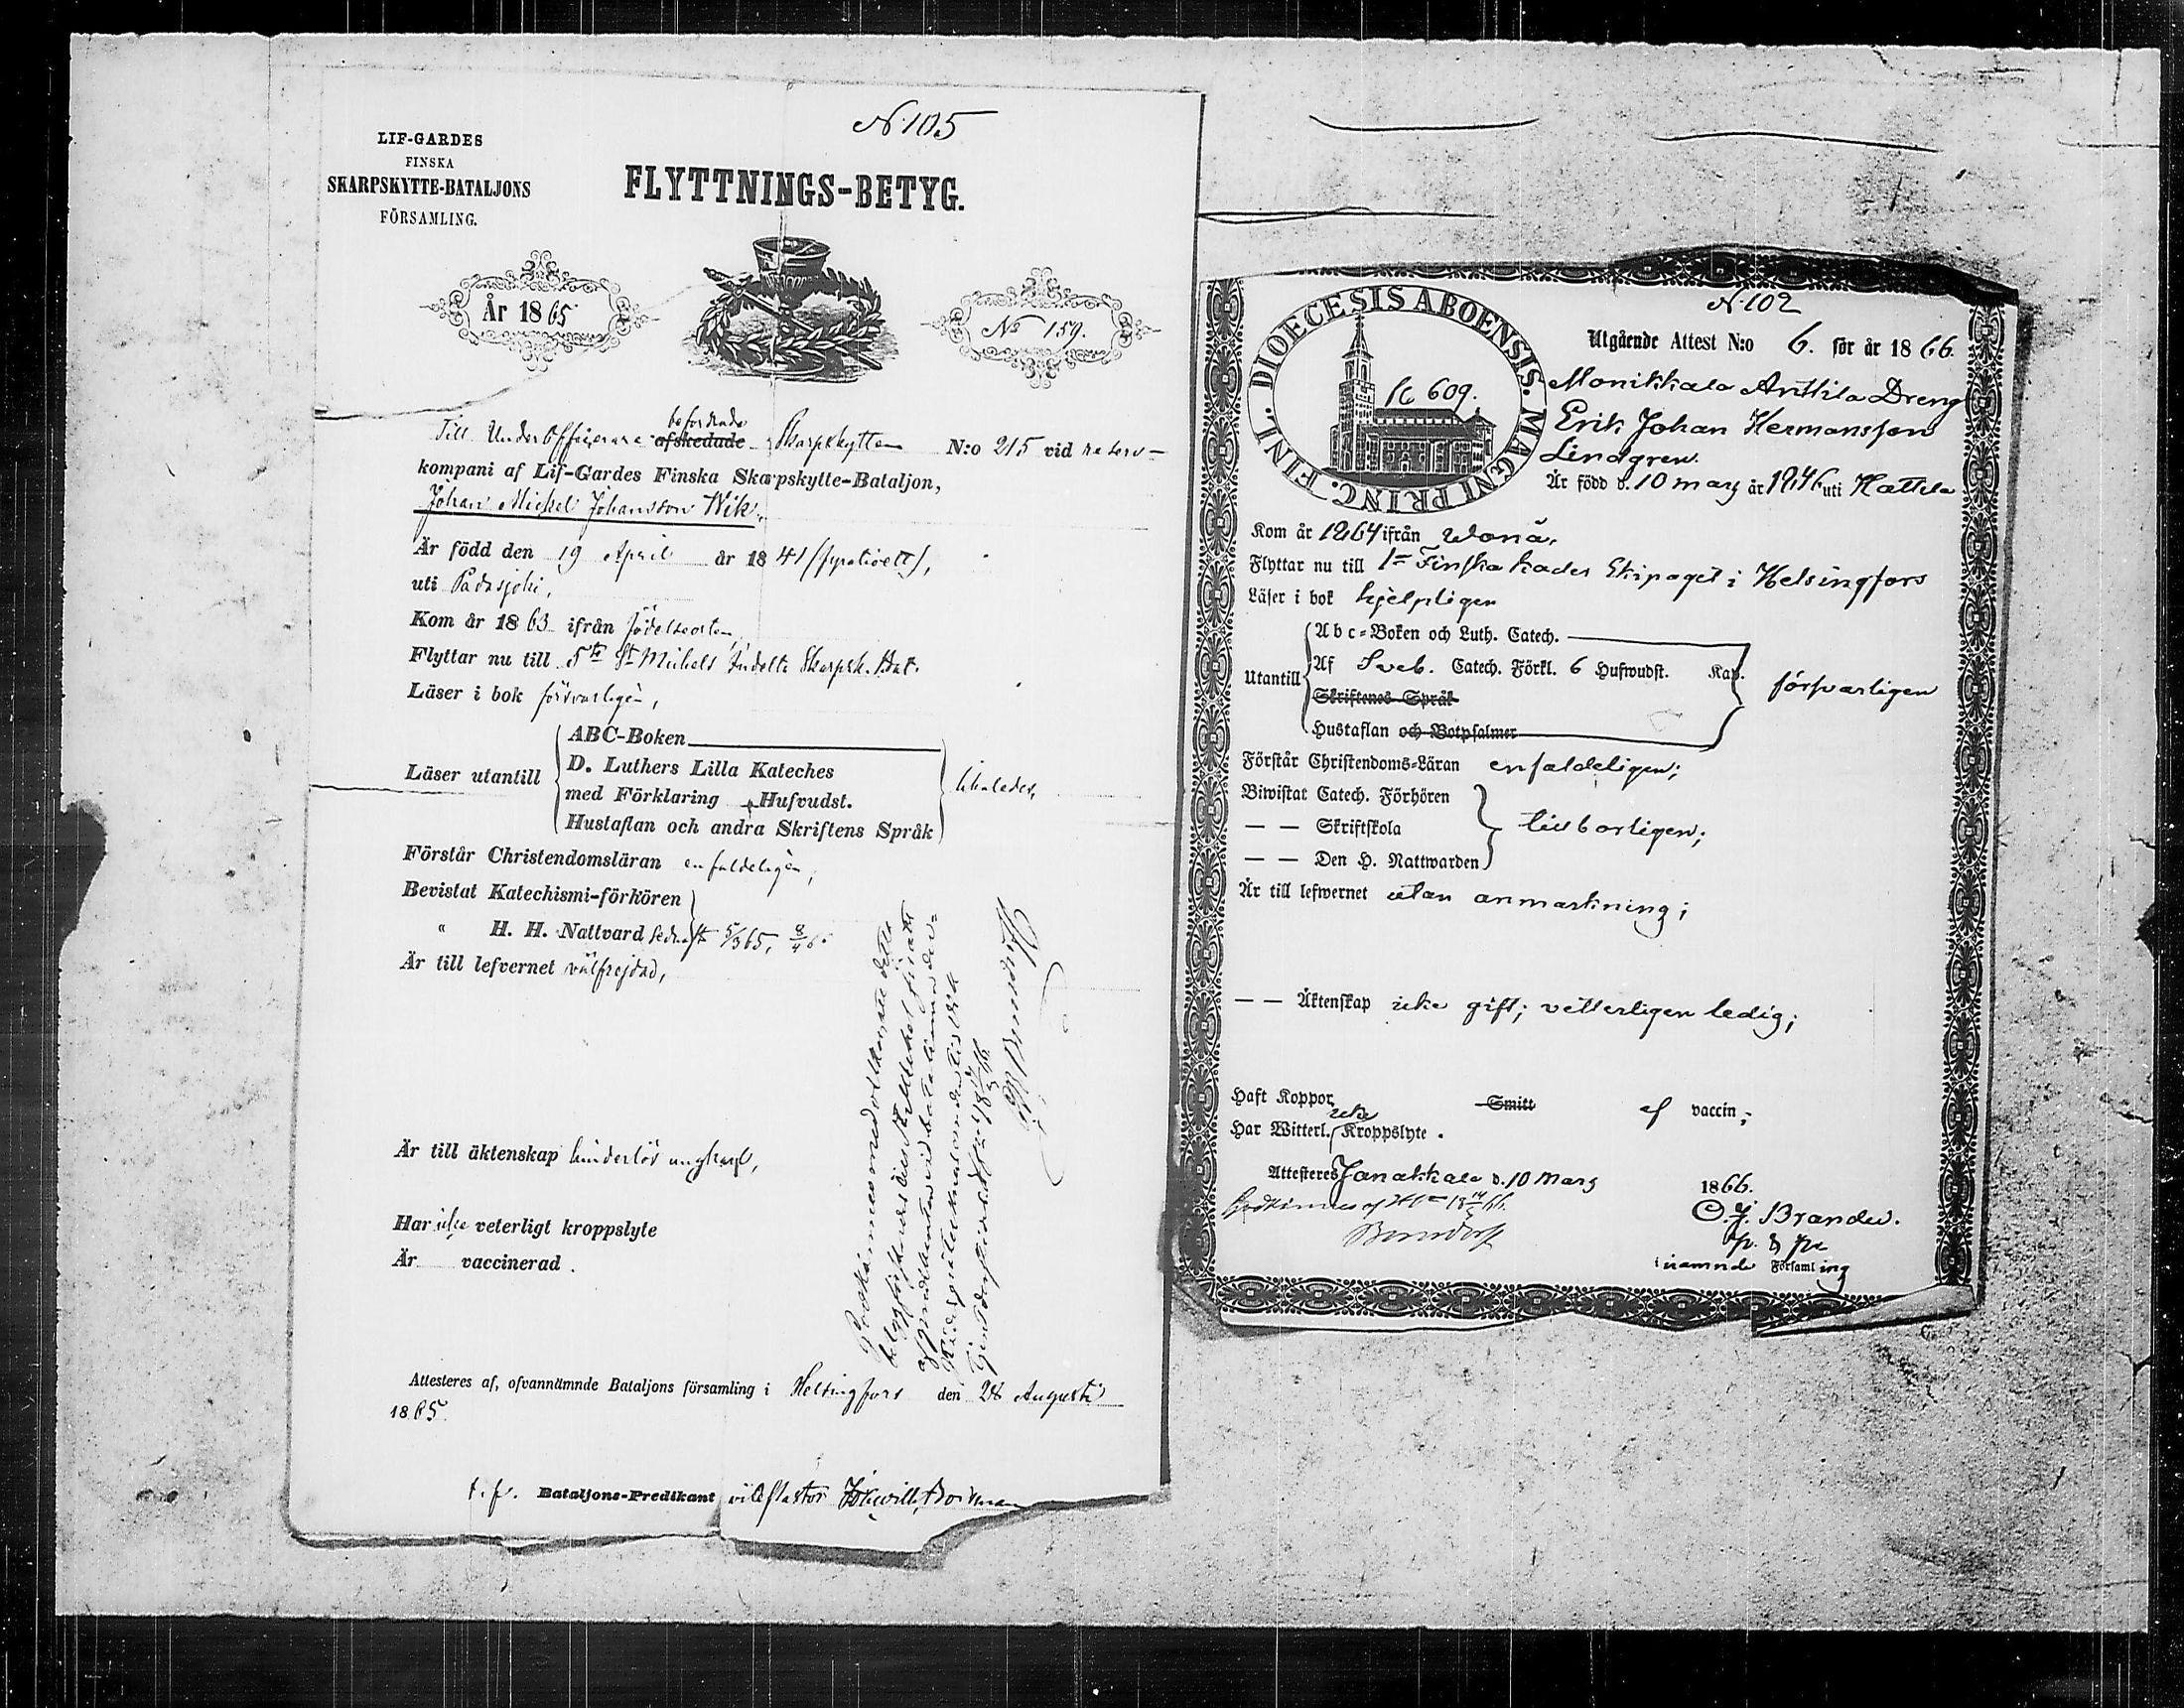 N. 105
LIF-GARDES
FINSKA
SKARPSKYTTE-BATALJONS
FÖRSAMLING.
FLYTTNINGS-BETYG.
År 1865
No 159.
befordrade
Till Underofficerare afskedade Skarpskytten N:o 215 vid reserv-
kompani af Lif-Gardes Finska Skarpskytte-Bataljon,
Johan Mickel Johansson Wik,
Är född den 19 April år 1841 (fyratioett),
uti Padasjoki,
Kom år 1863 ifrån födelseorten,
Flyttar nu till 5te St Michels Indelta Skarpsk. Bat.
Läser i bok försvarligen,
Läser utantill
ABC-Boken
D. Luthers Lilla Kateches
med Förklaring Hufvudst.
Hustaflan och andra Skriftens Språk
likaledes,
Förstår Christendomsläran enfaldeligen,
Bevistat Katechismi-förhören
" H. H. Nattvard sednast 5/3 65,
Är till lefvernet välfrejdad,
Är till äktenskap hinderlös ungkarl,
Har icke veterligt kroppslyte
Är vaccinerad .
Attesteras af, ofvannämnde Bataljons församling i Helsingfors den 28 Augusti
1865.
t.f. Bataljons-Predikant
N. 102
DIOECESIS ABOENSIS. MAGNI PRINC. FINL.
609.
Utgående Attest N:o 6. för år 1866.
Monikkala Anttila Dreng
Erik Johan Hermansson
Lindgren.
Är född d. 10 mars år 1846 uti Hattula
Kom år 1864 ifrån Wånå.
Flyttar nu till 1a Finska kader Ekipaget i Helsingfors
Läser i bok hjelpligen
Utantill
Abc-Boken och Luth. Catech.
Af Sveb. Catech. Förkl. 6 Hufwudst. Kap.
Skriftenes Språk
Hustaflan och Botpsalmer
försvarligen
Förstår Christendoms-Läran enfaldeligen;
Biwistat Catech. Förhören
— — Skriftskola
— — Den H. Nattwarden
tillbörligen;
Är till lefwernet utan anmärkning;
— — Äktenskap icke gift; vetterligen ledig;
Haft Koppor Smitt af vaccin;
Har Witterl. icke Kroppslyte .
Attesteras Janakkala d. 10 Mars 1866.
O. J. Brander.
i nämnde Församling